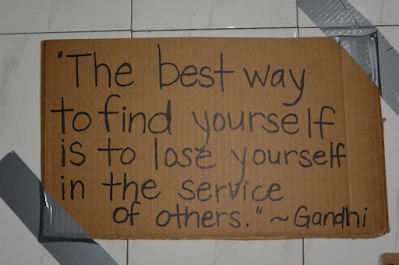 "The best way
to find yourself
is to lose yourself
in the service
of others." ~Gandhi